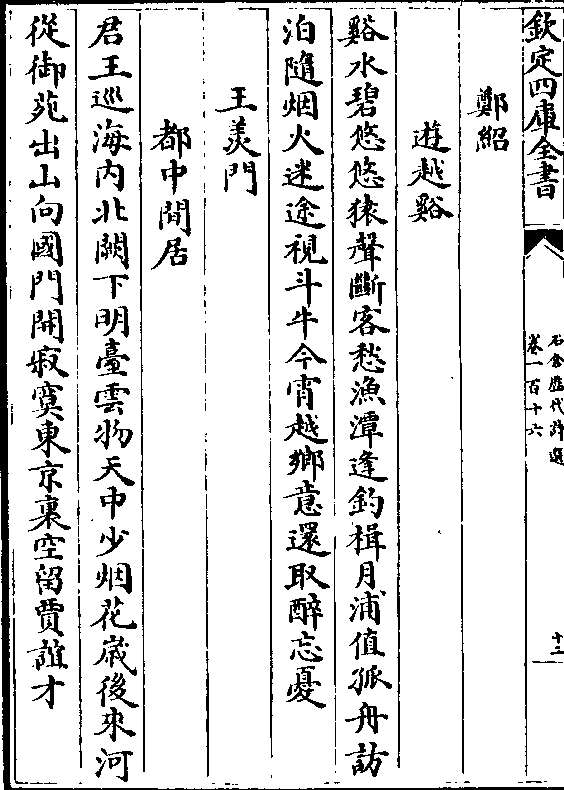 欽定四庫全書
石倉歷代詩選
卷一百十六
十三
鄭紹
遊越谿
谿水碧悠悠猿聲斷客愁漁潭逢釣楫月浦值孤舟訪
泊隨烟火迷途視斗牛今宵越鄉意還取醉忘憂
王羡門
都中閒居
君王巡海内北闕下明臺雲物天中少烟花歳後來河
從御苑出山向國門開寂寞東京裏空留賈誼才